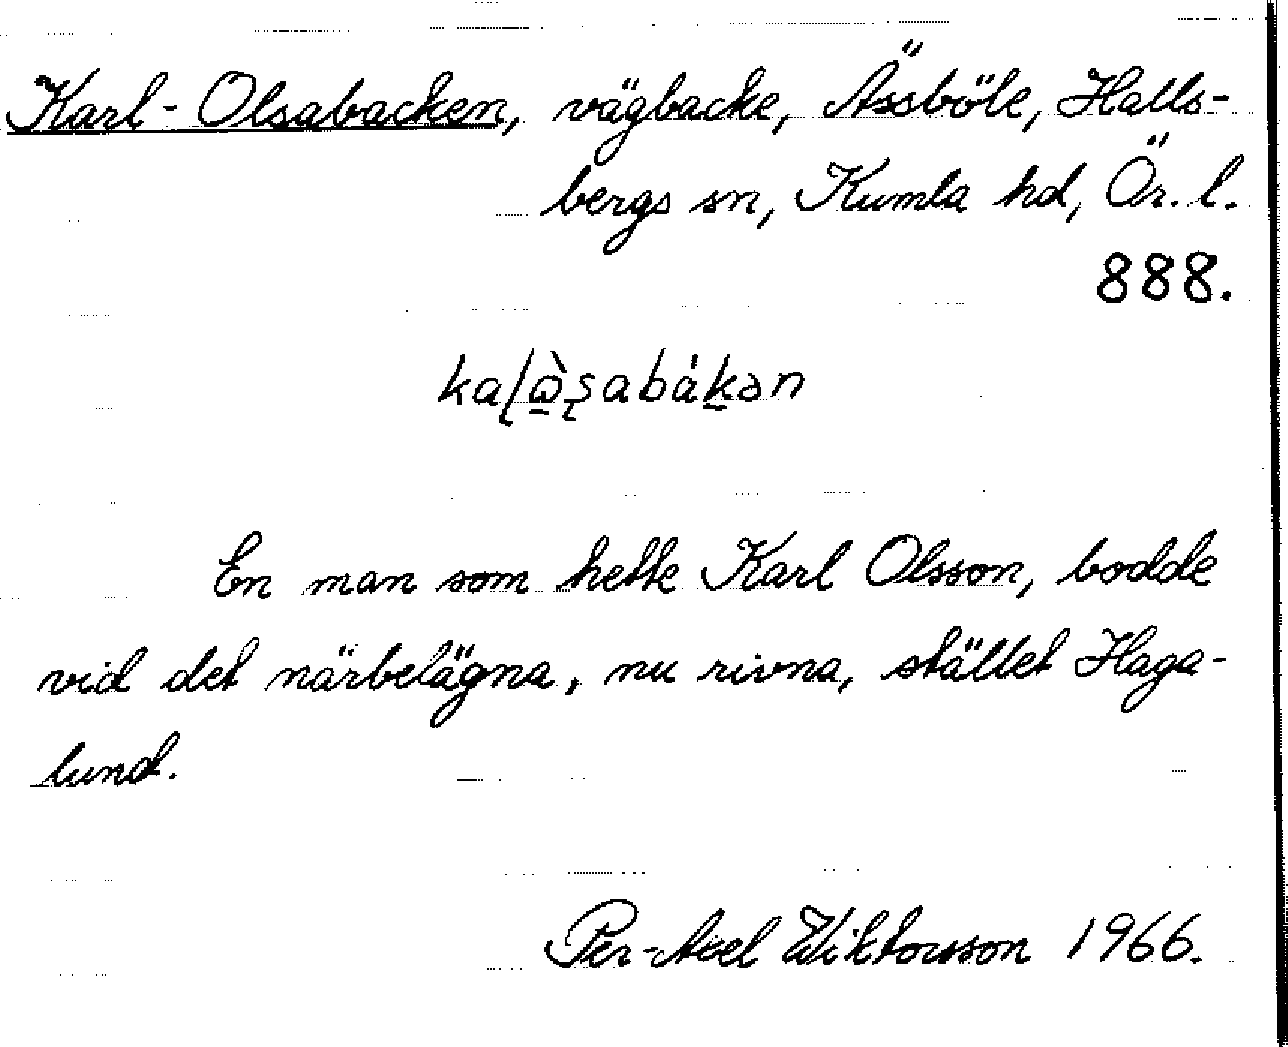 Karl-Olsabacken, vägbacke, Ässböle, Halls-
bergs sn, Kumla hd, Ör. l.
888.
En man som hette Karl Olsson, bodde
vid det närbelägna, nu rivna, stället Haga-
lund.
Per-Axel Wiktorsson 1966.